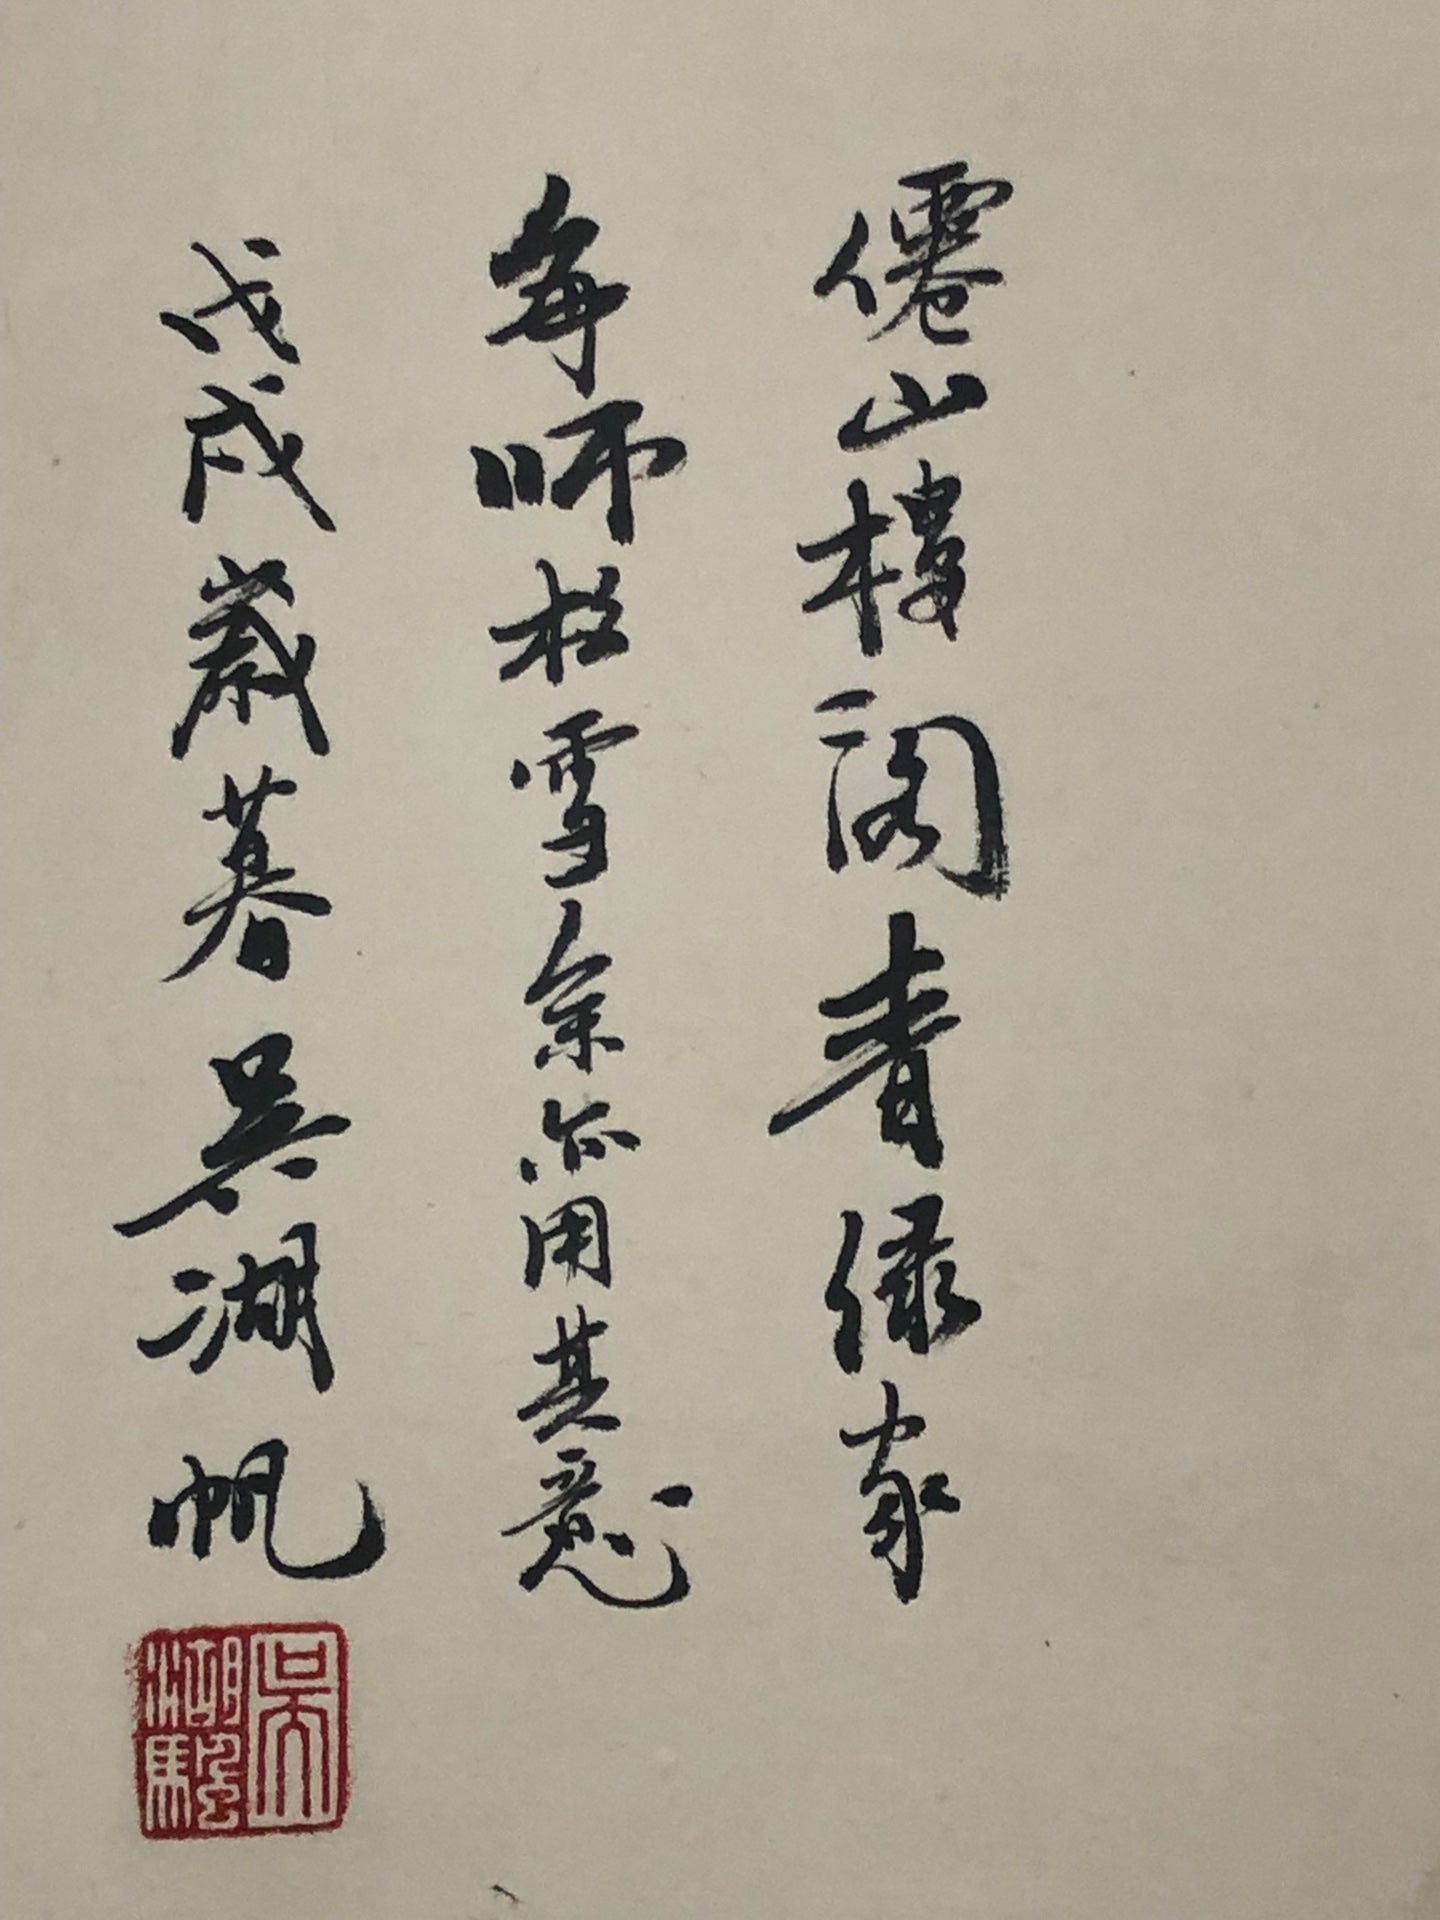 僊山樓閣青綠家
每師松雪余亦用其意
戊戌歲暮吳湖颿
吳湖颿